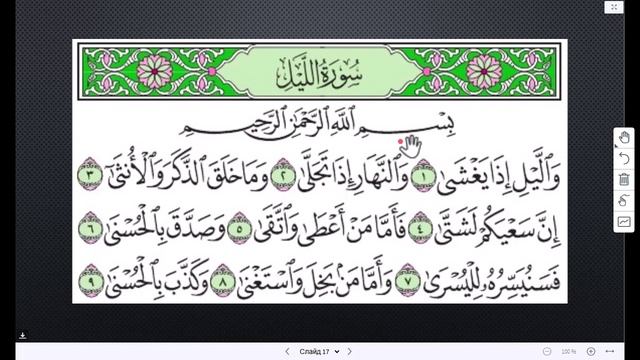 سُورَةُ اللَّيْلِ
بِسْمِ ٱللَّهِ ٱلرَّحْمَٰنِ ٱلرَّحِيمِ
وَٱلَّيْلِ إِذَا يَغْشَىٰ ١ وَٱلنَّهَارِ إِذَا تَجَلَّىٰ ٢ وَمَا خَلَقَ ٱلذَّكَرَ وَٱلْأُنثَىٰ ٣
إِنَّ سَعْيَكُمْ لَشَتَّىٰ ٤ فَأَمَّا مَنْ أَعْطَىٰ وَٱتَّقَىٰ ٥ وَصَدَّقَ بِٱلْحُسْنَىٰ ٦
فَسَنُيَسِّرُهُۥ لِلْيُسْرَىٰ ٧ وَأَمَّا مَنۢ بَخِلَ وَٱسْتَغْنَىٰ ٨ وَكَذَّبَ بِٱلْحُسْنَىٰ ٩
Слайд 17
100 %